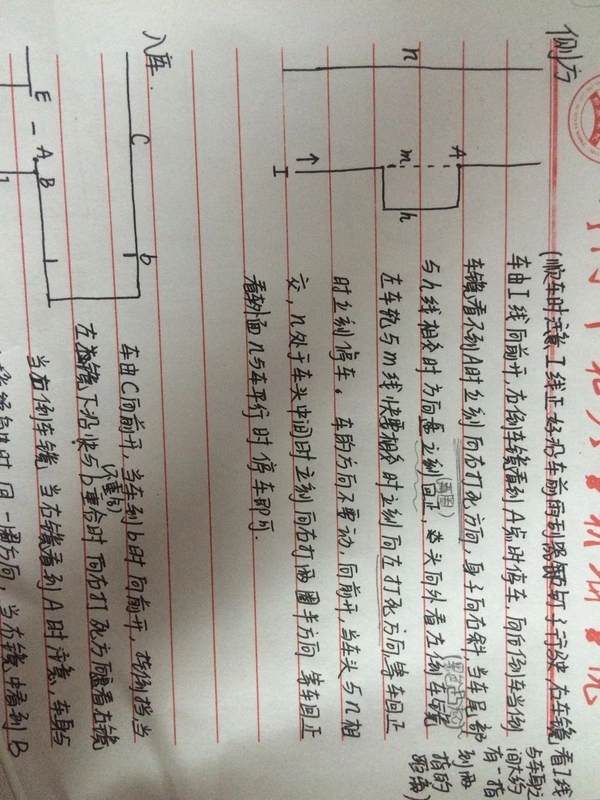 侧方
n
A
m
h
I
(顺车时注意I线正好沿车前雨刮器铆钉子行驶,右车镜看I线
与车身之
间大约
有一指
到两
指的
距离)
车由I线向前开,右倒车镜看到A点时停车,向后倒车当倒
车镜看不到A时立刻向右打死方向,身子向右斜当车尾部
与h线相交时方向盘立刻回正,
头向外看左倒车镜
左车轮与m线快要相交时立刻向左打死方向等车回正
时立刻停车。车的方向不要动,向前开,当车头与n相
交,n处于车头中间时立刻向右打两圈半方向 等车回正
看外面n与车平行时停车即可.
入库.
C
b
E
A
B
车由C向前开,当车到b时向前开,挂倒挡,当
左
镜下沿快与b重合时
(不重合)
向右打死方向
看左镜
当右倒车镜 当右镜看到A时注意,车身与
时 回一圈方向,当右镜中看到B